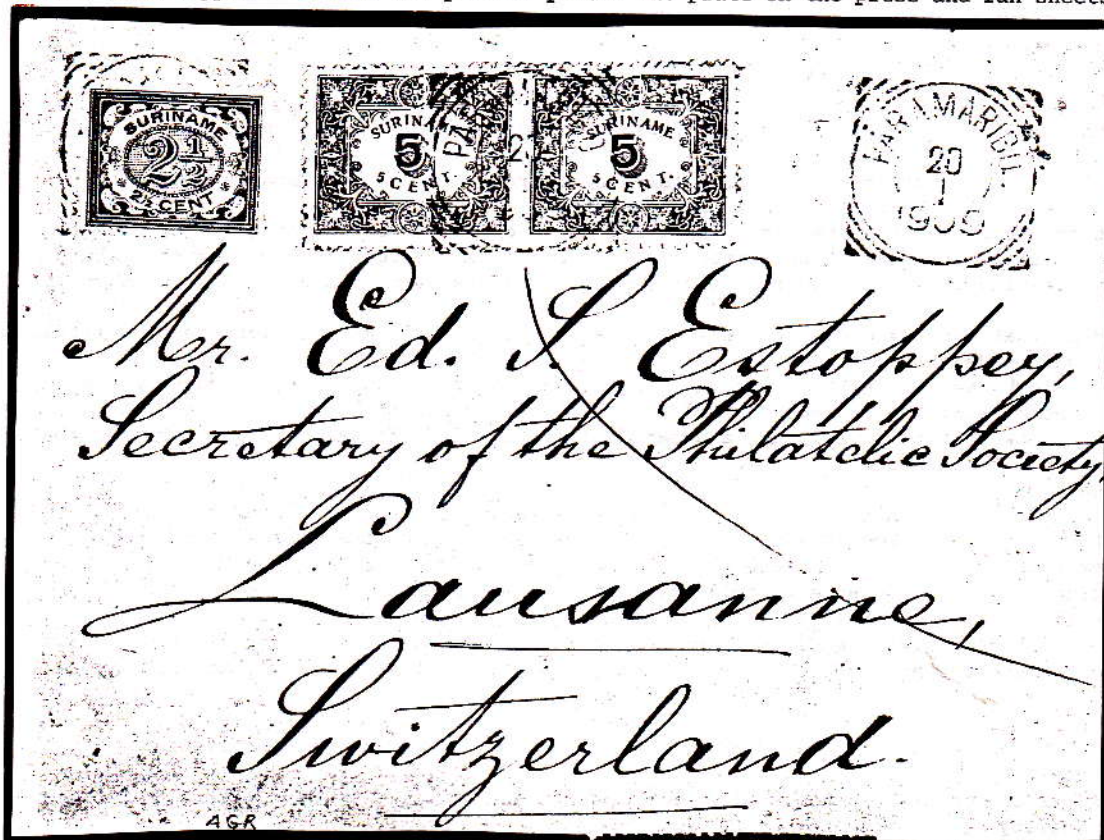 in the press and run sheets
SURINAME
2 1/2
2½ CENT
SURINAME
5
5 CENT.
SURINAME
5
5 CENT.
PARAMARIBO.
20
1
1909
Mr. Ed. S. Estoppey,
Secretary of the Philatelic Society,
Lausanne,
Switzerland.
AGR